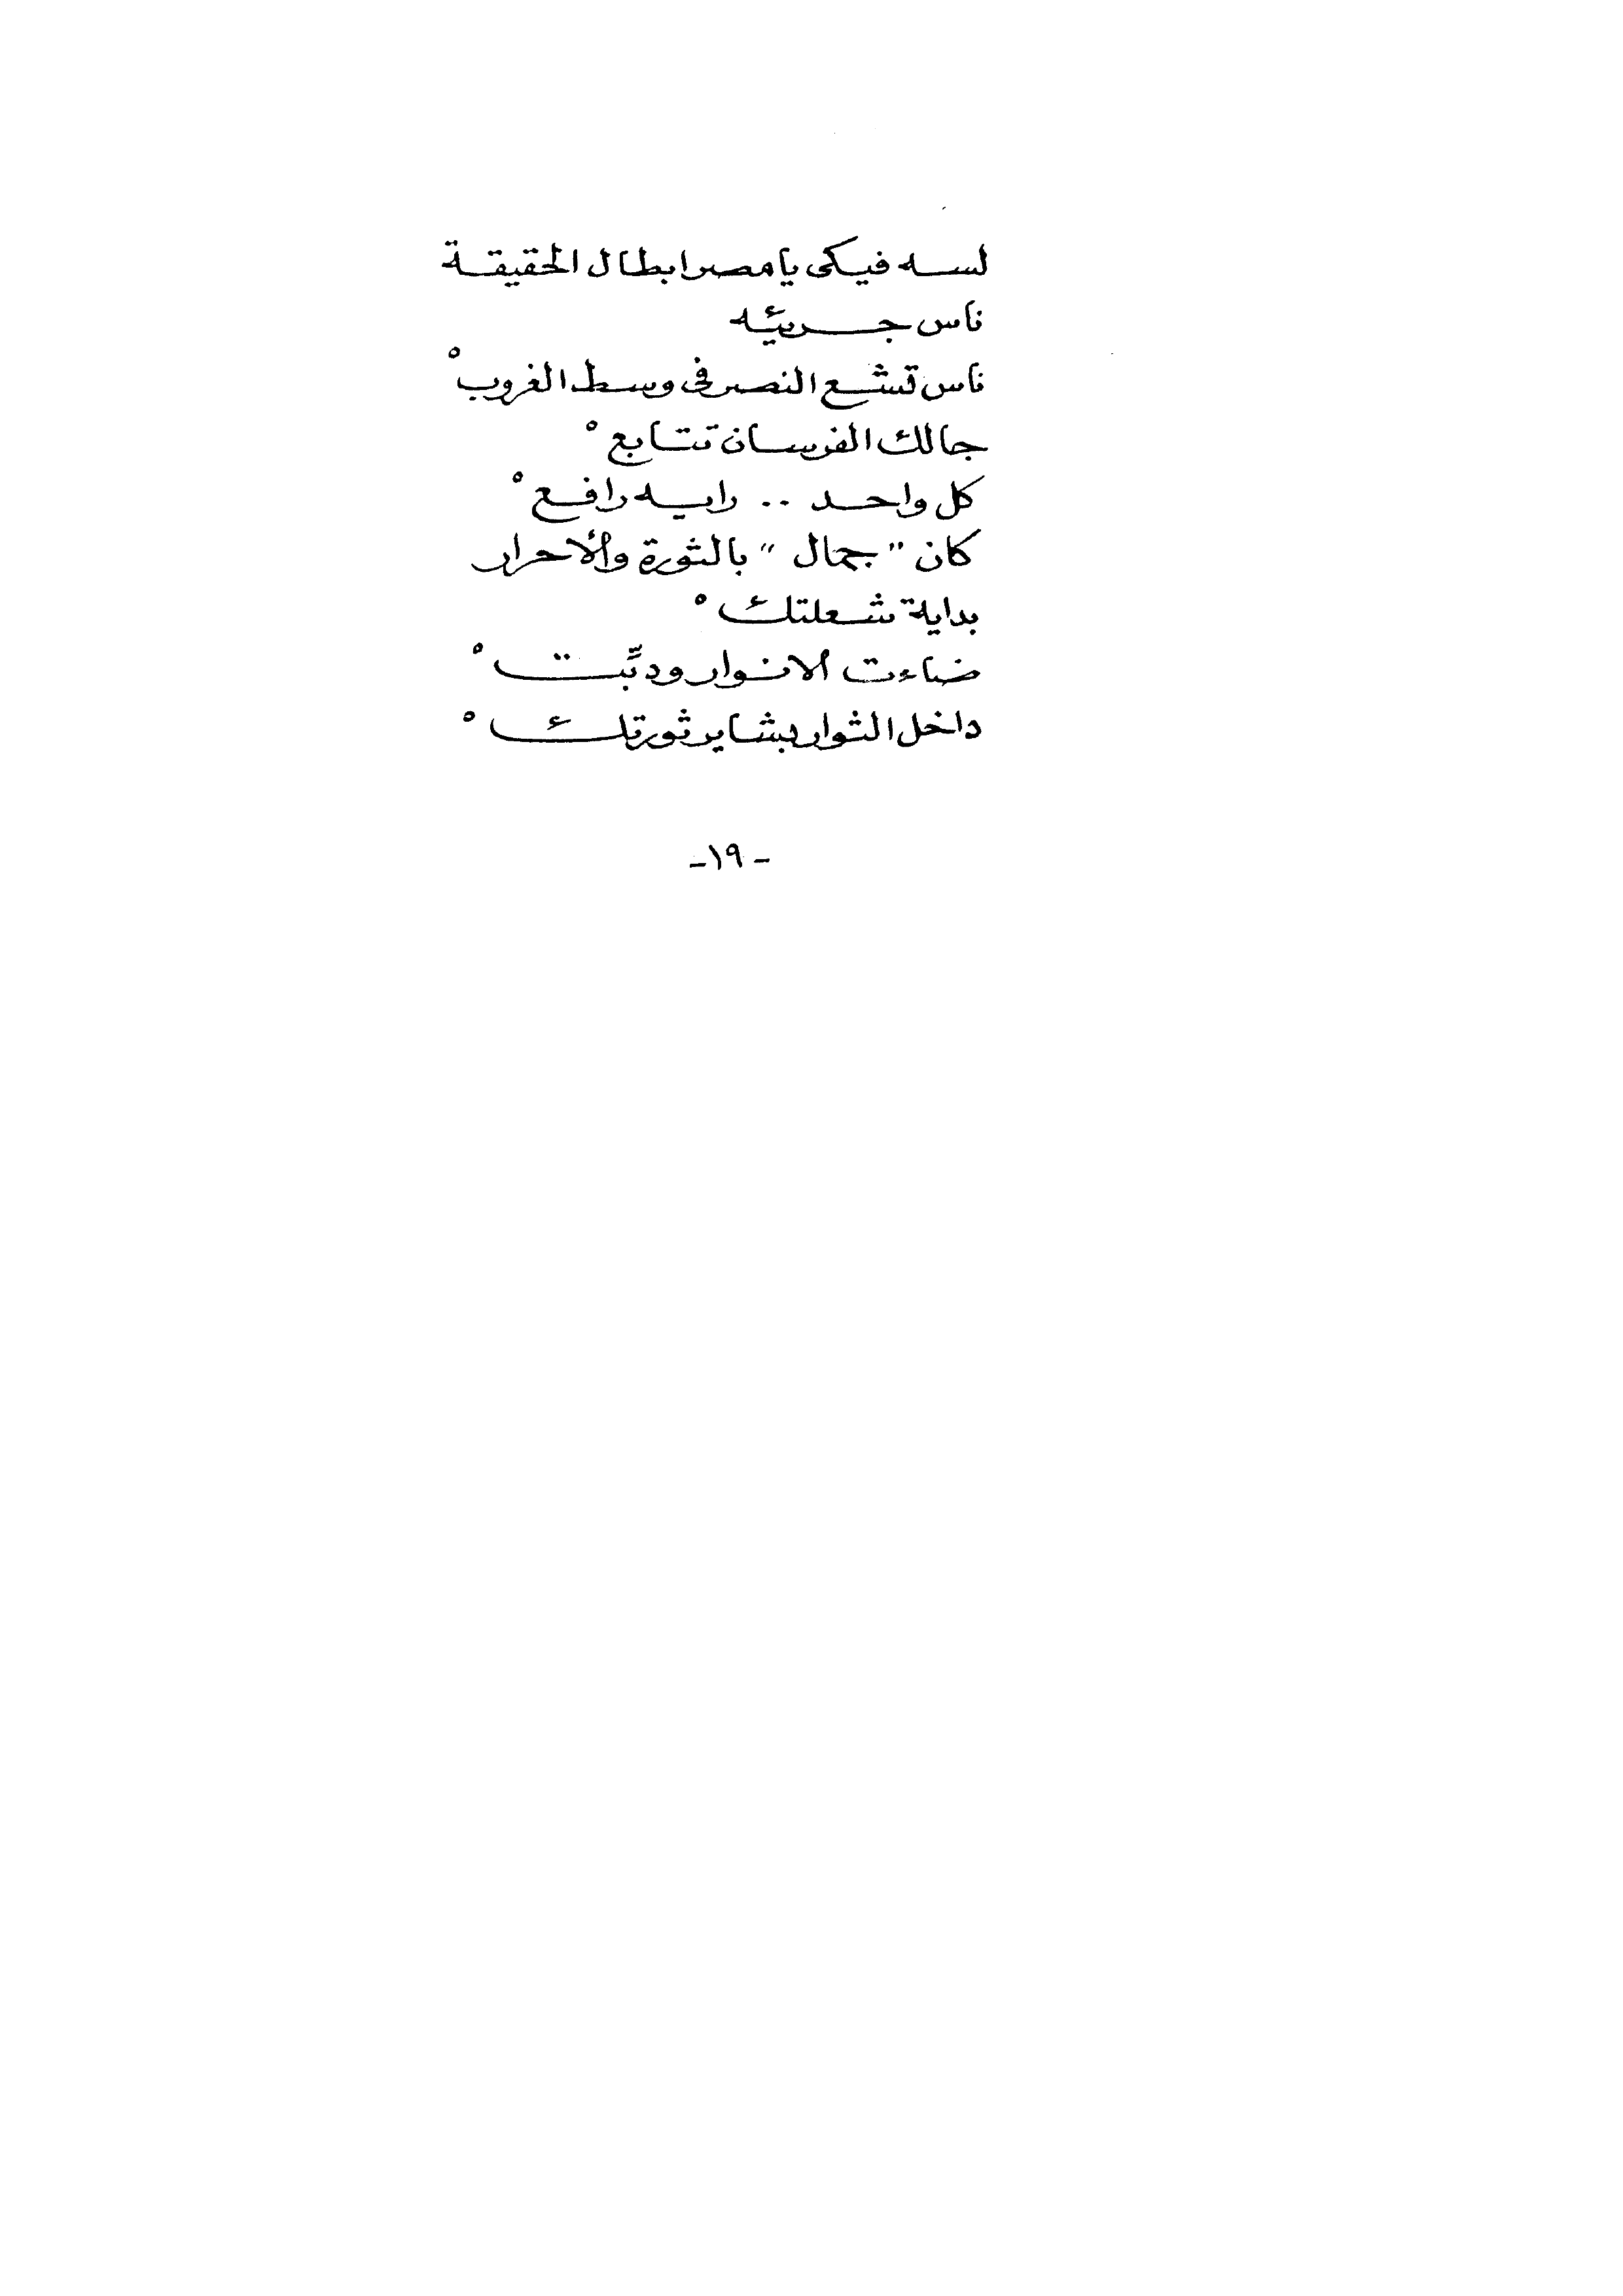 لسه فيكى يا مصر ابطال الحقيقة
ناس جريئه
ناس تشع النصر فى وسط الغروبْ
جالك الفرسان تتابعْ
كل واحد .. رايه رافعْ
كان "جمال" بالثورة والأحرار
بداية شعلتكْ
ضاءت الانوار ودبِّتْ
داخل الثوار بشاير ثورتكْ
-١٩-